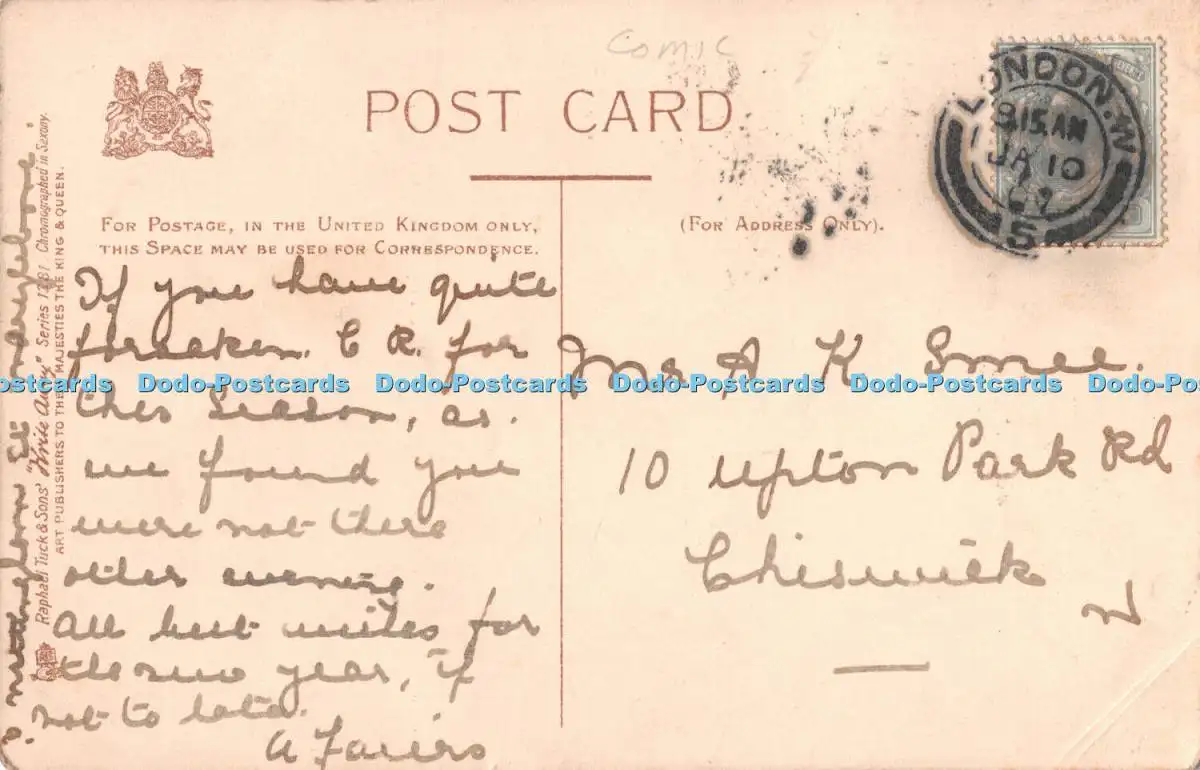 COMIC
POST CARD
FOR POSTAGE, IN THE UNITED KINGDOM ONLY,
THIS SPACE MAY BE USED FOR CORRESPONDENCE.
(FOR ADDRESS ONLY).
LONDON. W
9.15 AM
JA 10
07
5
If you have quite
forsaken. C R. for
this Season, as.
we found you
were not there
other evening.
All best wishes for
the new year, if
not to late.
A Fariers
A K Smee.
10 Upton Park Rd
Chiswick
W
Raphael Tuck & Sons' "Write Away" Series 1281 Chromographed in Saxony.
ART PUBLISHERS TO THEIR MAJESTIES THE KING & QUEEN.
nottingham St marylebone
Dodo-Postcards Dodo-Postcards Dodo-Postcards Dodo-Postcards Dodo-Postcards Dodo-Po